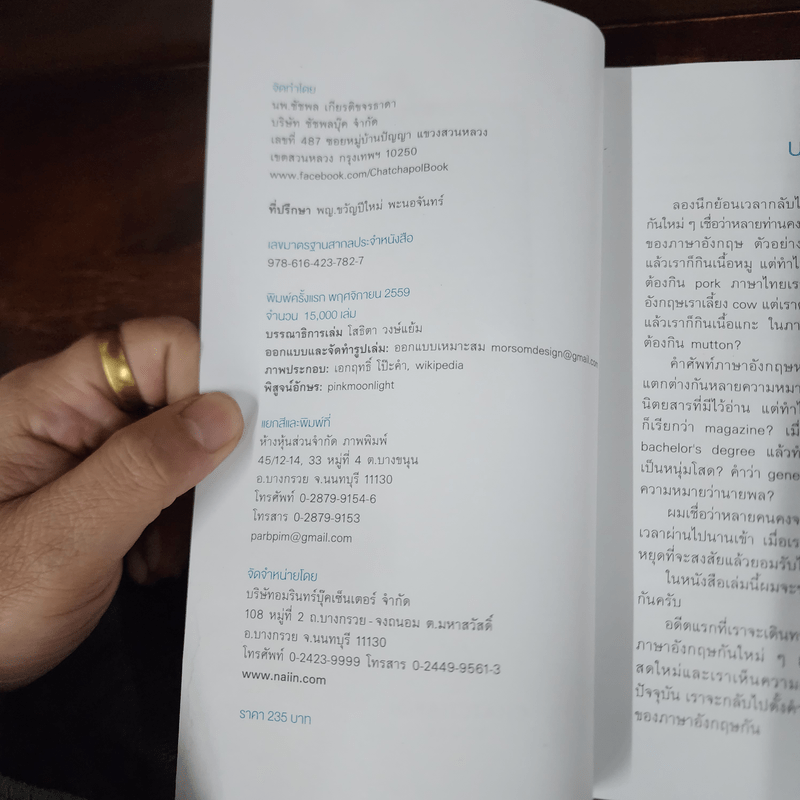 จัดทำโดย
นพ.ชัชพล เกียรติขจรธาดา
บริษัท ชัชพลบุ๊ค จำกัด
เลขที่ 487 ซอยหมู่บ้านปัญญา แขวงสวนหลวง
เขตสวนหลวง กรุงเทพฯ 10250
www.facebook.com/ChatchapolBook
ที่ปรึกษา พญ.ขวัญปีใหม่ พะนอจันทร์
เลขมาตรฐานสากลประจำหนังสือ
978-616-423-782-7
พิมพ์ครั้งแรก พฤศจิกายน 2559
จำนวน 15,000 เล่ม
บรรณาธิการเล่ม โสธิตา วงษ์แย้ม
ออกแบบและจัดทำรูปเล่ม: ออกแบบเหมาะสม morsomdesign@gmail.com
ภาพประกอบ: เอกฤทธิ์ โป๊ะคำ, wikipedia
พิสูจน์อักษร: pinkmoonlight
แยกสีและพิมพ์ที่
ห้างหุ้นส่วนจำกัด ภาพพิมพ์
45/12-14, 33 หมู่ที่ 4 ต.บางขนุน
อ.บางกรวย จ.นนทบุรี 11130
โทรศัพท์ 0-2879-9154-6
โทรสาร 0-2879-9153
parbpim@gmail.com
จัดจำหน่ายโดย
บริษัทอมรินทร์บุ๊คเซ็นเตอร์ จำกัด
108 หมู่ที่ 2 ถ.บางกรวย - จงถนอม ต.มหาสวัสดิ์
อ.บางกรวย จ.นนทบุรี 11130
โทรศัพท์ 0-2423-9999 โทรสาร 0-2449-9561-3
www.naiin.com
ราคา 235 บาท
ลองนึกย้อนเวลากลับไ
กันใหม่ ๆ เชื่อว่าหลายท่านคง
ของภาษาอังกฤษ ตัวอย่าง
แล้วเราก็กินเนื้อหมู แต่ทำไ
ต้องกิน pork ภาษาไทยเร
อังกฤษเราเลี้ยง cow แต่เรา
แล้วเราก็กินเนื้อแกะ ในภา
ต้องกิน mutton?
คำศัพท์ภาษาอังกฤษห
แตกต่างกันหลายความหมา
นิตยสารที่มีไว้อ่าน แต่ทำไ
ก็เรียกว่า magazine? เมื่
bachelor's degree แล้วทำ
เป็นหนุ่มโสด? คำว่า gene
ความหมายว่านายพล?
ผมเชื่อว่าหลายคนคงจ
เวลาผ่านไปนานเข้า เมื่อเร
หยุดที่จะสงสัยแล้วยอมรับไ
ในหนังสือเล่มนี้ผมจะ
กันครับ
อดีตแรกที่เราจะเดินท
ภาษาอังกฤษกันใหม่ ๆ
สดใหม่และเราเห็นความ
ปัจจุบัน เราจะกลับไปตั้งคำ
ของภาษาอังกฤษกัน